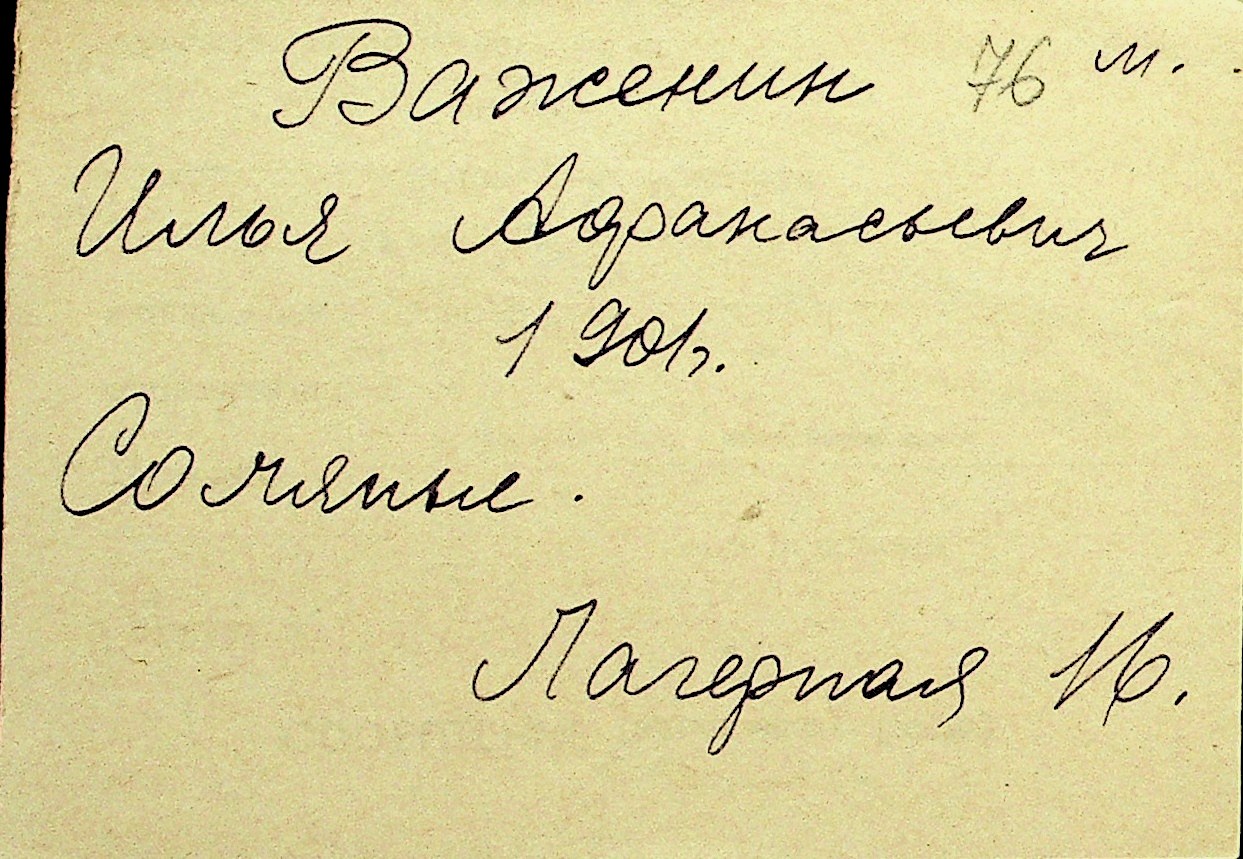 Важенин 76 м.
Илья Афанасьевич
1901г.
Соляные.
Лагерная 16.